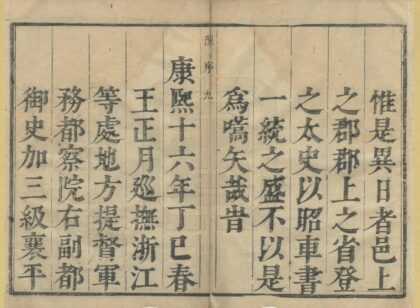 惟是異日者邑上
之郡郡上之省登
之太史以昭車書
一統之盛不以是
爲嚆矢哉旹
陳序 九
康熙十六年丁巳春
王正月廵撫浙江
等處地方提督軍
務都察院右副都
御史加三級襄平